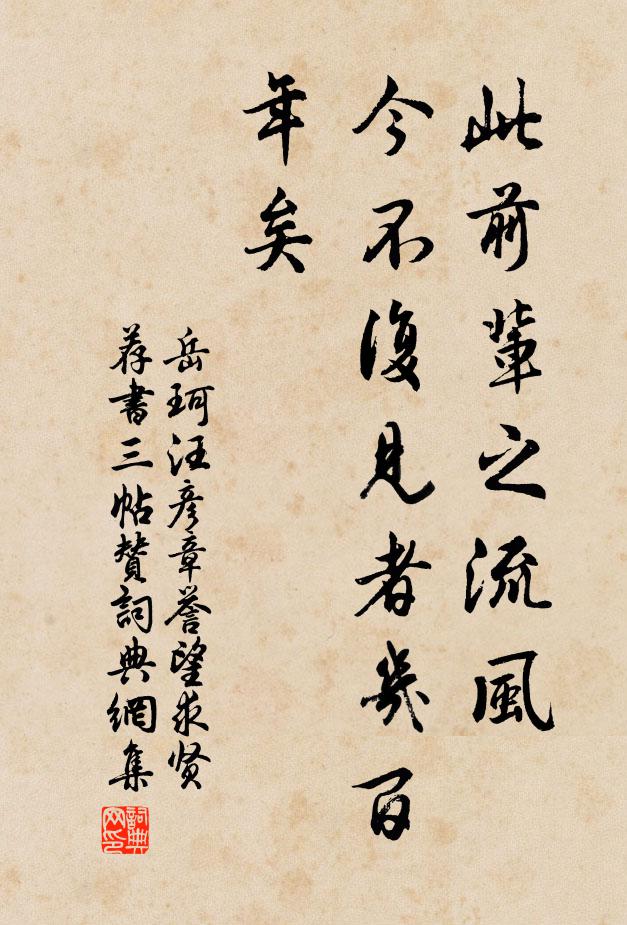 此前輩之流風
今不復見者幾百
年矣
岳珂汪彦章誉望求贤
荐書三帖贊詞典網集
詞典网印